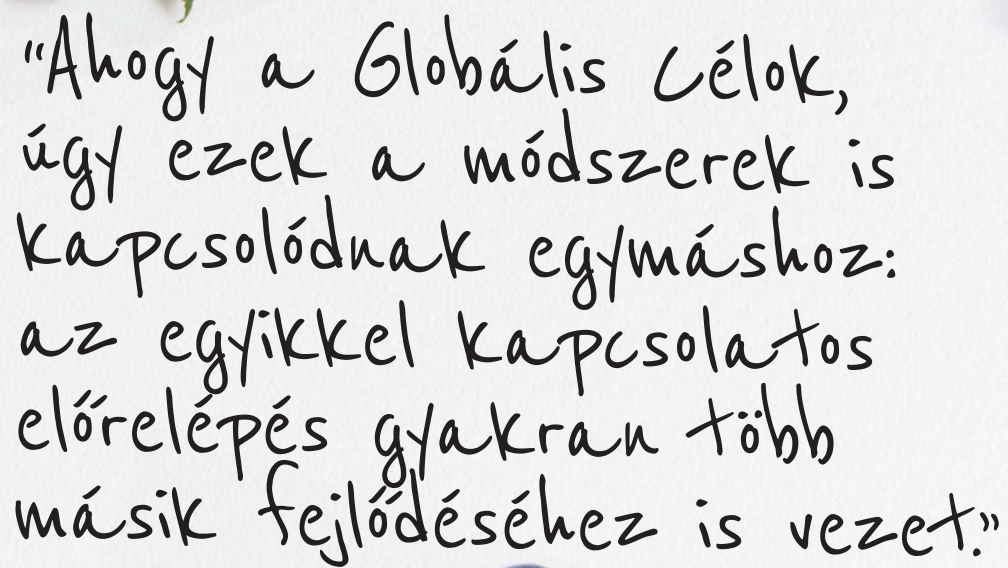 "Ahogy a Globális Célok,
úgy ezek a módszerek is
kapcsolódnak egymáshoz:
az egyikkel kapcsolatos
előrelépés gyakran több
másik fejlődéséhez is vezet."